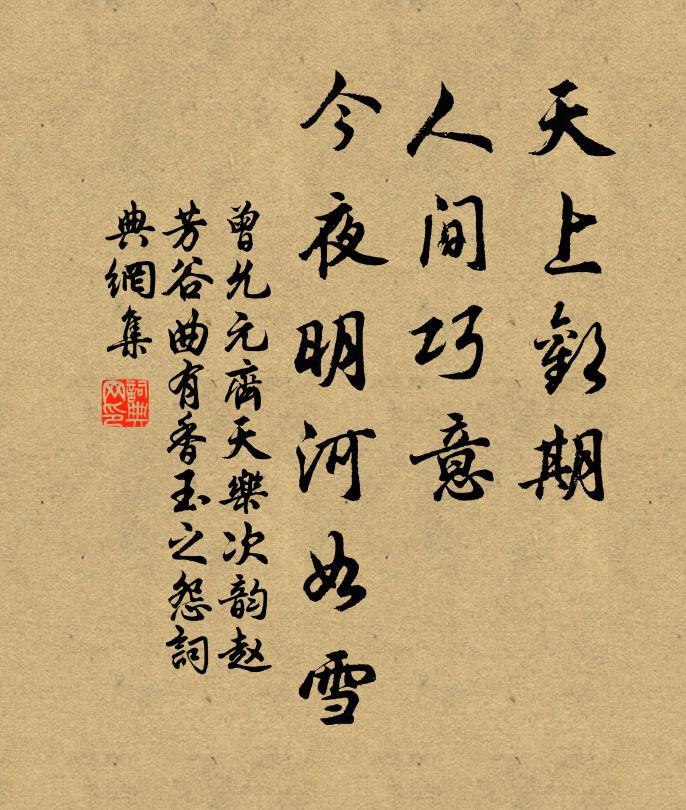 天上歡期
人間巧意
今夜明河如雪
曾允元齊天樂次韵赵
芳谷曲有香玉之怨詞
典網集
詞典网印